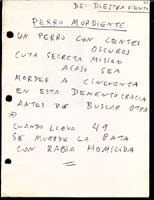 DE: DIESTRA SIENTO
PERRO MORDIENTE
UN PERRO CON LENTES
OSCUROS
CUYA SECRETA MISION
ACASO SEA
MORDER A CINCUENTA
EN ESTA DEMENTOCRACIA
ANTES DE BUSCAR OTRA
CUANDO LLEVA 49
SE MUERDE LA PATA
CON RABIA HOMICIDA